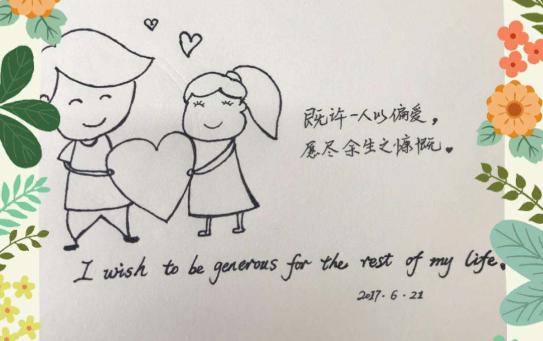 既许一人以偏爱，
愿尽余生之慷慨。
I wish to be generous for the rest of my life.
2017.6.21